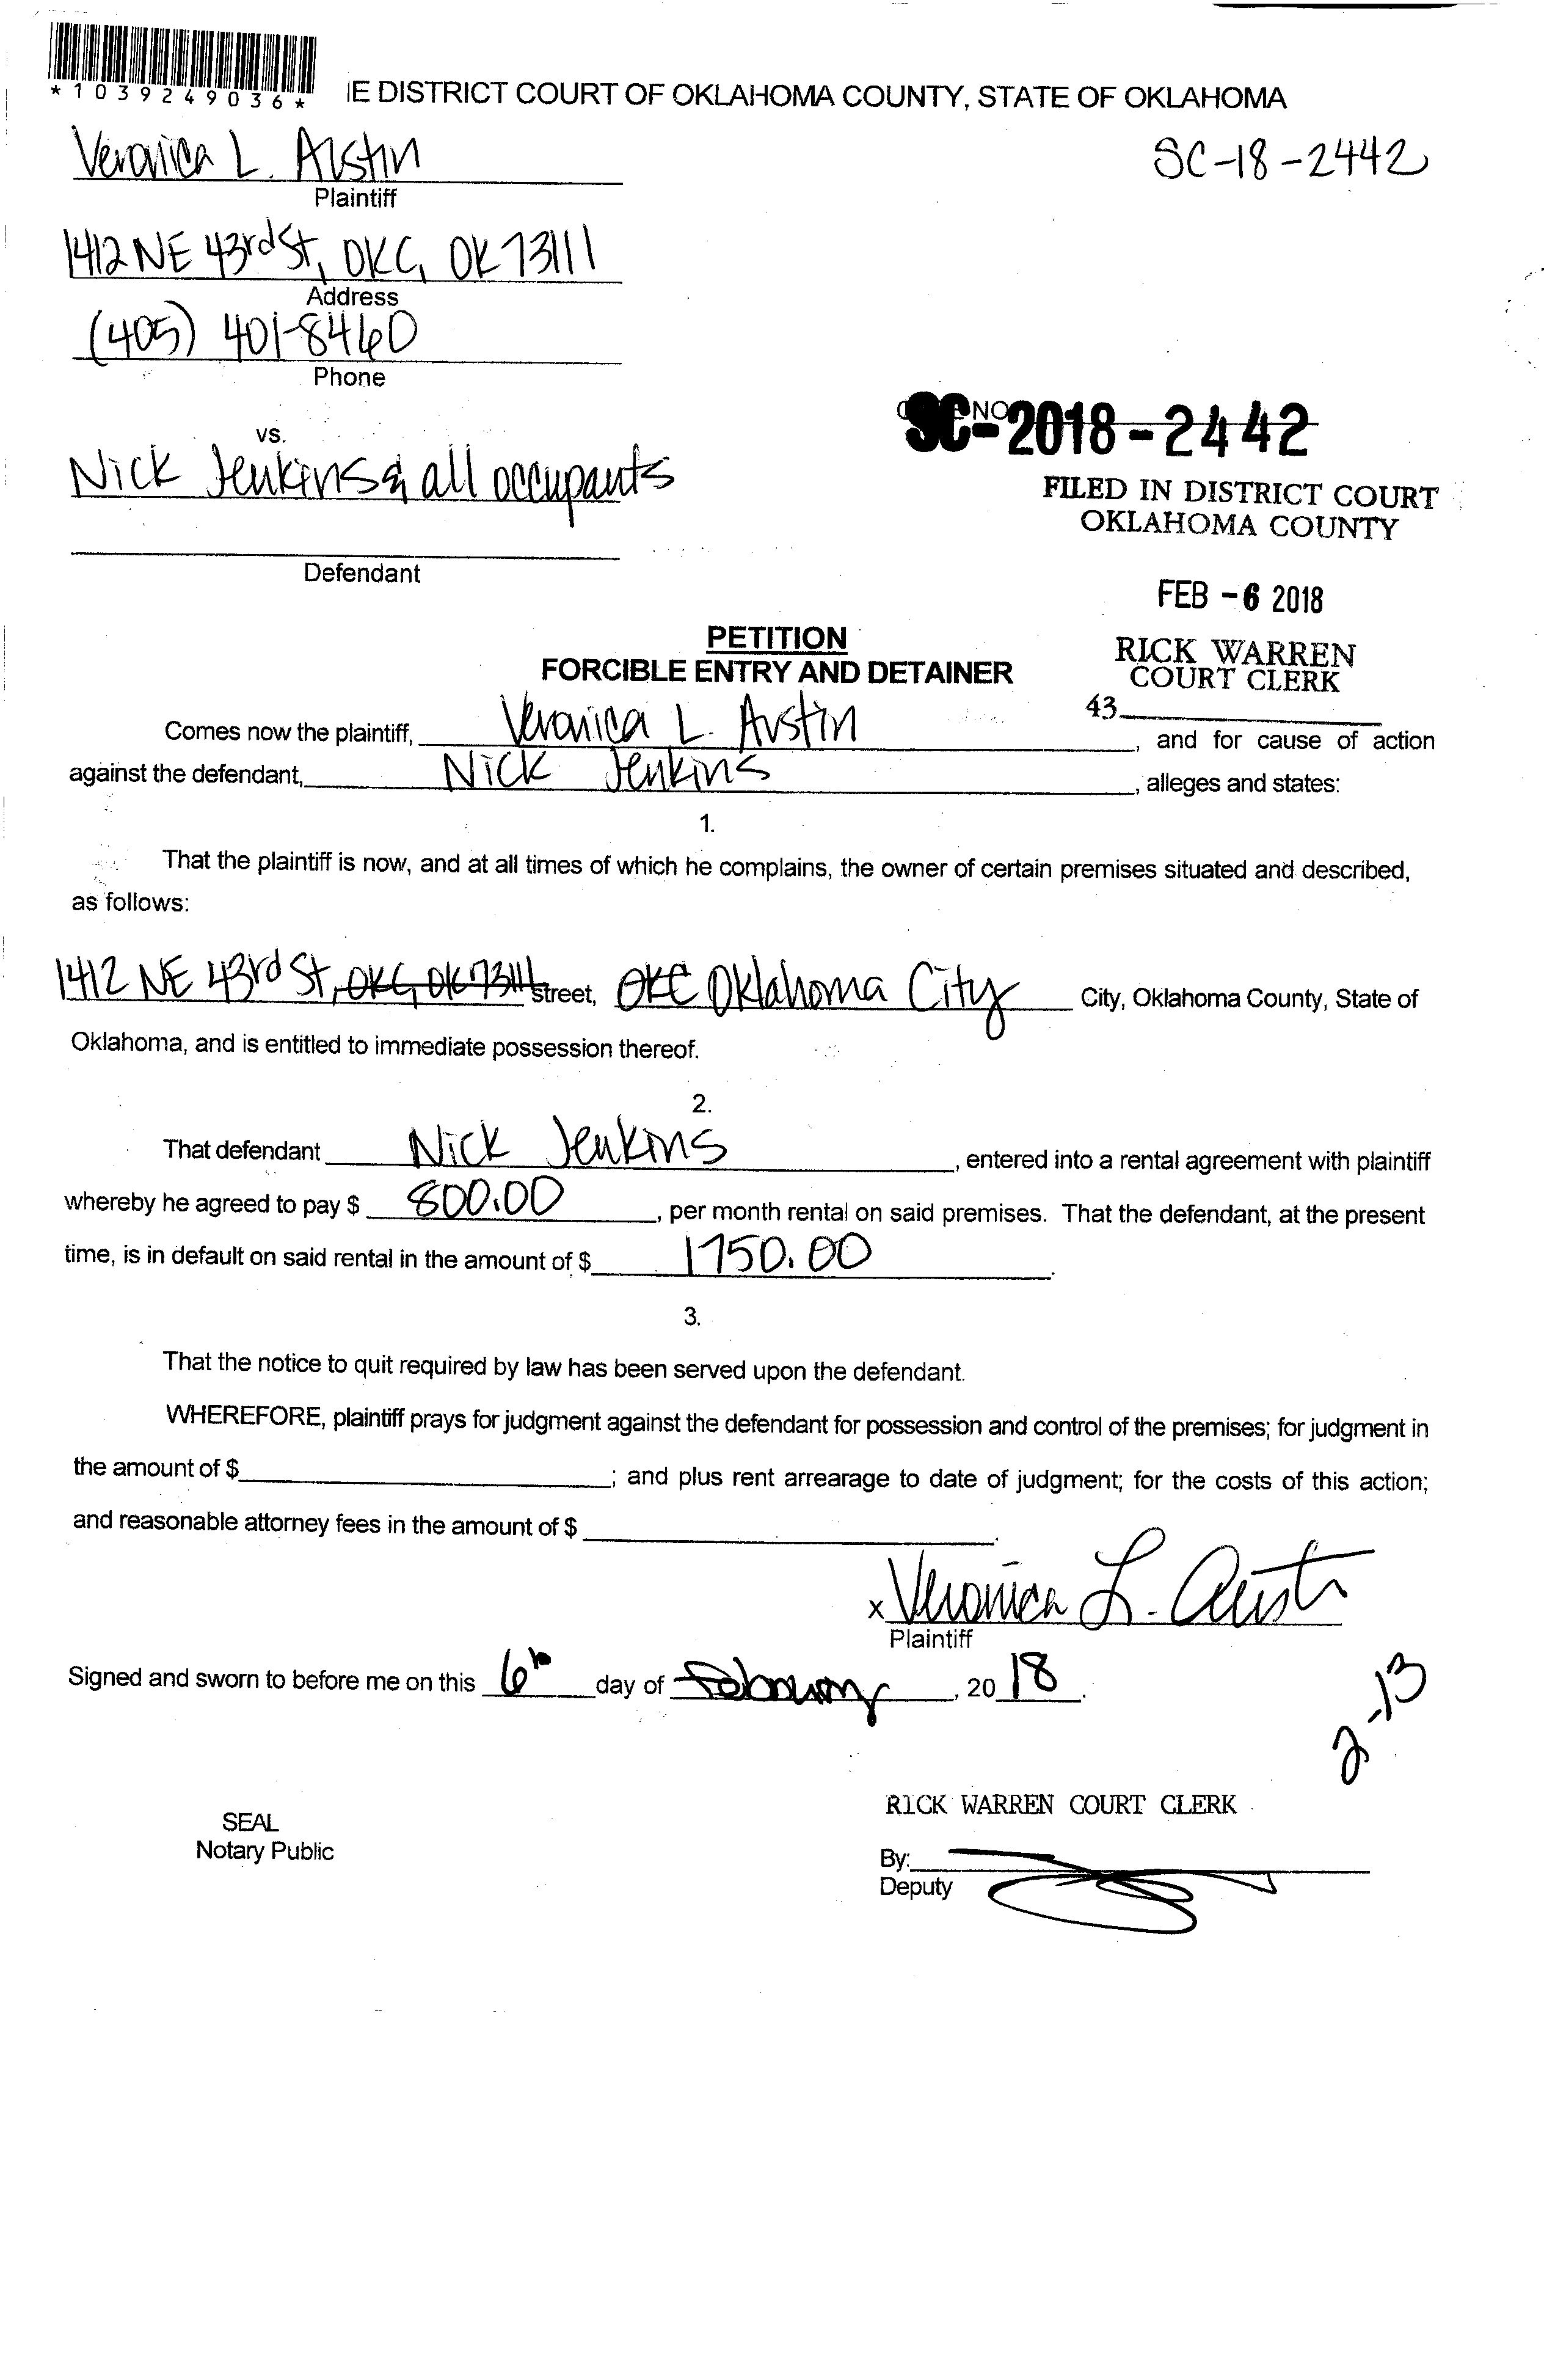 *1039249036*
IE DISTRICT COURT OF OKLAHOMA COUNTY, STATE OF OKLAHOMA
Veronica L. Austin
SC-18-2442
Plaintiff
1412 NE 43rd St, OKC, OK 73111
Address
(405) 401-8460
Phone
SC-2018-2442
NO
vs.
Nick Jenkins & all occupants
FILED IN DISTRICT COURT
OKLAHOMA COUNTY
Defendant
FEB -6 2018
PETITION
FORCIBLE ENTRY AND DETAINER
RICK WARREN
COURT CLERK
43
Comes now the plaintiff, Veronica L. Austin, and for cause of action
against the defendant, Nick Jenkins, alleges and states:
1.
That the plaintiff is now, and at all times of which he complains, the owner of certain premises situated and described,
as follows:
1412 NE 43rd St, OKC, OK 73111 street, OKC Oklahoma City City, Oklahoma County, State of
Oklahoma, and is entitled to immediate possession thereof.
2.
That defendant Nick Jenkins, entered into a rental agreement with plaintiff
whereby he agreed to pay $ 800.00, per month rental on said premises. That the defendant, at the present
time, is in default on said rental in the amount of $ 1750.00.
3.
That the notice to quit required by law has been served upon the defendant.
WHEREFORE, plaintiff prays for judgment against the defendant for possession and control of the premises; for judgment in
the amount of $ ; and plus rent arrearage to date of judgment; for the costs of this action;
and reasonable attorney fees in the amount of $ .
x Veronica L. Austin
Plaintiff
Signed and sworn to before me on this 6th day of February, 2018.
2-13
RICK WARREN COURT CLERK
SEAL
Notary Public
By:
Deputy